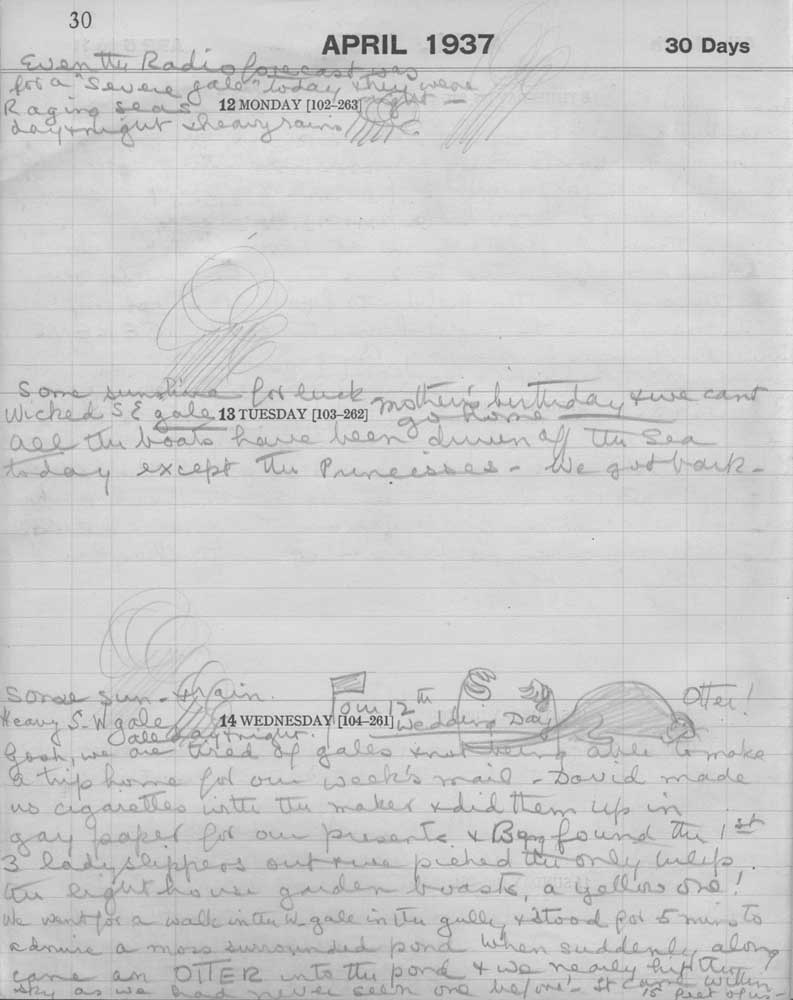 30
APRIL 1937
30 Days
Even the Radio forecast was
for a "Severe gale" today & they were
Raging seas 12 MONDAY [102–263] right –
day & night & heavy rains
Some sunshine for luck mother's birthday & we cant
Wicked S E gale 13 TUESDAY [103–262] go home
All the boats have been driven off the Sea
today except the Princesses – We got back –
Some sun – & rain. Otter!
Heavy S. W gale 14 WEDNESDAY [104–261] our 12th Wedding Day
all day & night.
Gosh, we are tired of gales & not being able to make
a trip home for our week's mail – David made
us cigarettes with the maker & did them up in
gay paper for our presents & found the 1st
3 ladyslippers out & we picked the only tulip
the lighthouse garden boasts, a yellow one!
We went for a walk in the W. gale in the gully & stood for 5 mins to
admire a moss surrounded pond when suddenly along
came an OTTER into the pond & we nearly hit the
sky as we had never seen one before – It came within
15 feet